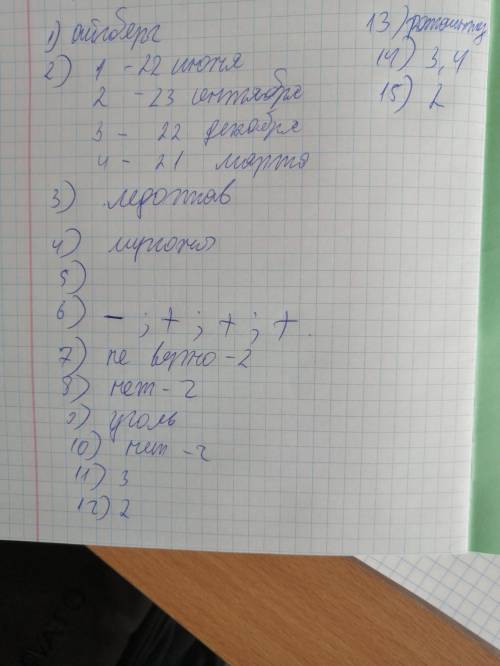 1) айсберг
2) 1 - 22 июня
2 - 23 сентября
3 - 22 декабря
4 - 21 марта
3) ледостав
4)
5)
6) - ; + ; + ; +.
7) не верно - 2
8) нет - 2
9) уголь
10) нет - 2
11) 3
12) 2
13)
14) 3, 4
15) 2